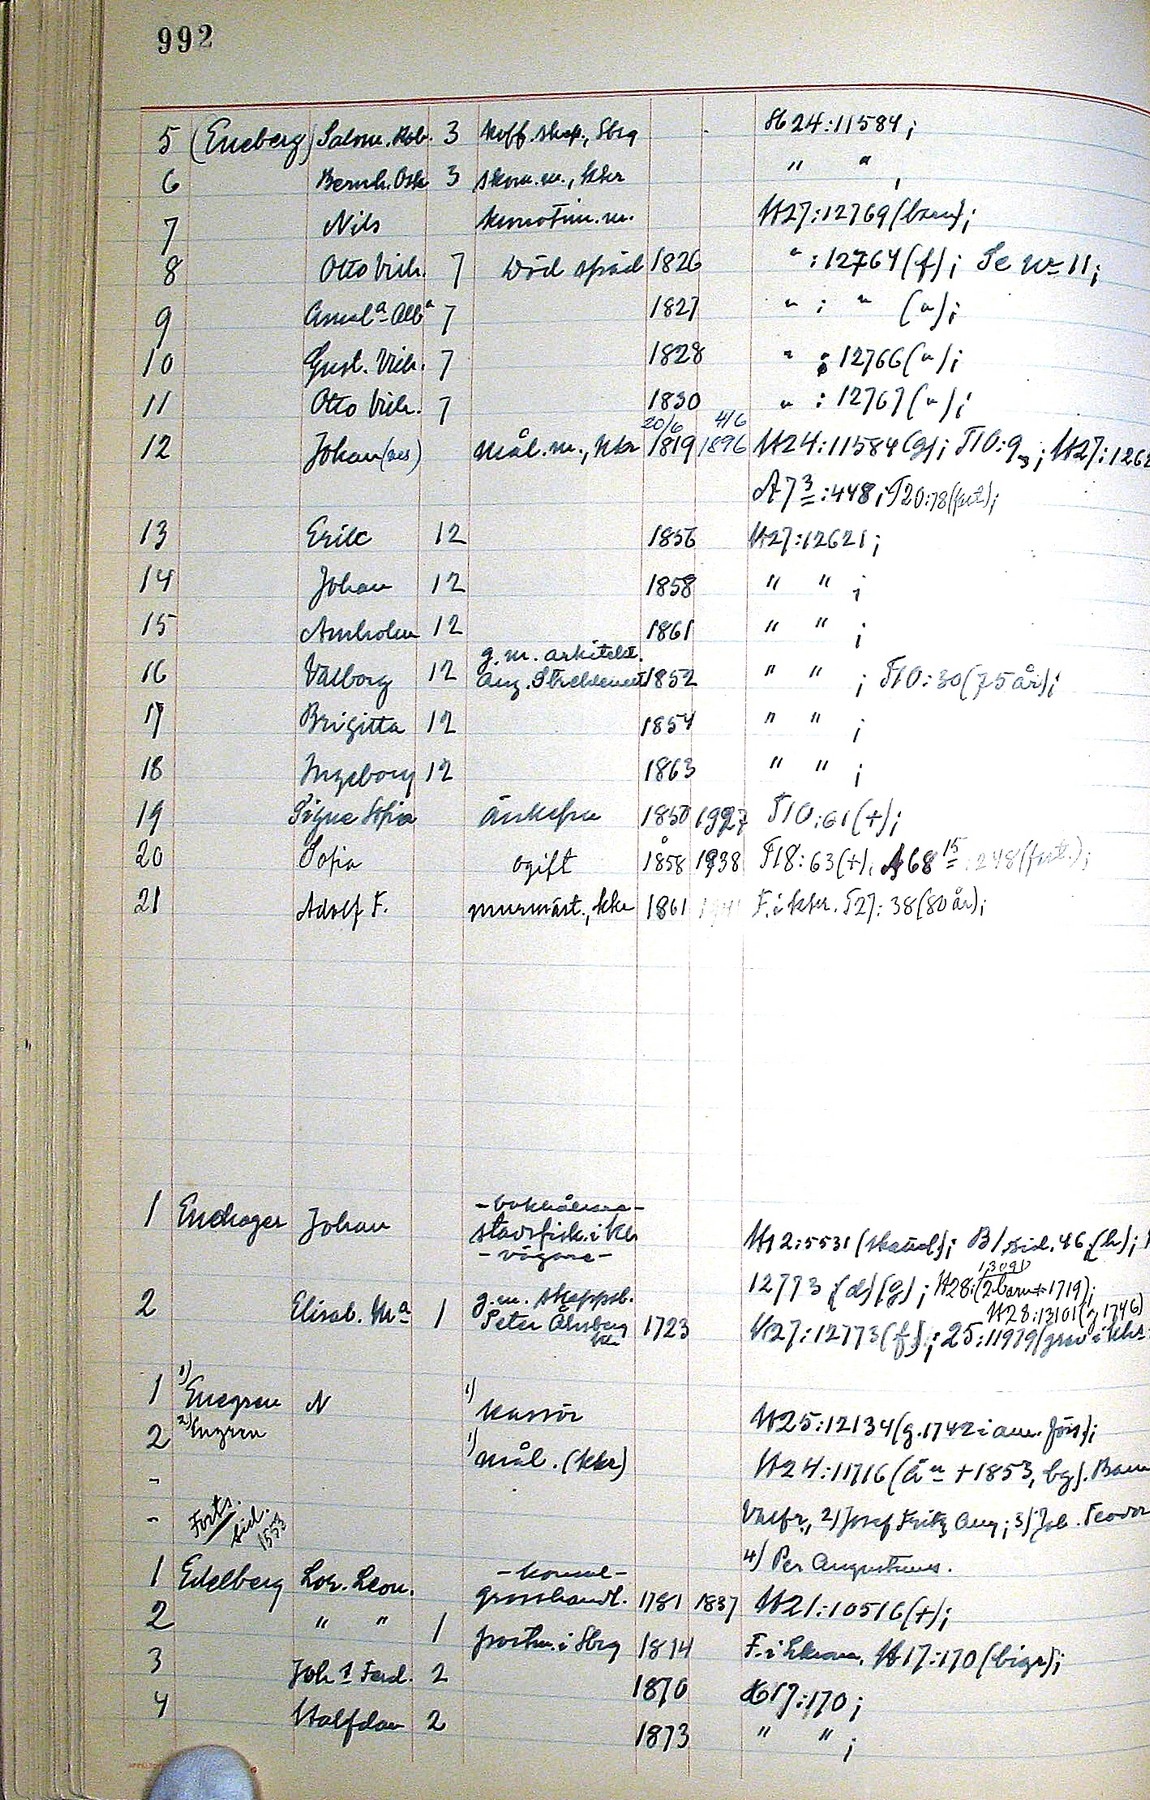 992
5 (Eneberg) Salom. Rob. 3 koff. skep., Sbrg H24:11584;
6 Bernh. Osk 3 skom.m., kkr " " ;
7 Nils H27:12769 (barn);
8 Otto Vilh. 7 död späd 1826 " :12764 (f); Se nr 11;
9 Amal a Alb a 7 1827 " ; " (");
10 Gust. Vilh. 7 1828 " : 12766 (");
11 Otto Vilh. 7 1830 " : 12767 (");
20/6 4/6
12 Johan (nes) mål.m., kkr 1819 1896 H24:11584 (g); T10:9; H27:1262
A 7 3 :448; T20:78 (fert);
13 Erik 12 1856 H27:12621;
14 Johan 12 1858 " " ;
15 Arnholm 12 1861 " " ;
g. m. arkitekt.
16 Valborg 12 Aug. 1852 " " ; T10:30 (75 år);
17 Brigitta 12 1854 " " ;
18 Ingeborg 12 1863 " " ;
19 Signe Sofia änkefru 1850 1927 T10:61 (+);
20 Sofia ogift 1858 1938 T18:63 (+). A68 15 :248 (fert.);
21 Adolf F. murmäst., kkr 1861 1941 F. i kkr. T27:38 (80 år);
- bokhållare -
1 Enehager Johan stadsfisk. i kkr H12:5531 (skatted); B/ sid. 46 (h);
- vågare -
12773 (d) (g); H28: 13090 (2 barn + 1719);
2 Elisab. M a 1 g. m. skeppsb. H28:13101 (g 1746)
Peter Åhsberg 1723 H27:12773 (f); 25:11979 (grav i kkr
kkr
1 1) Enegren N 1) kassör H25:12134 (g. 1742 i am. förs);
2 2) Engren 1) mål. (kkr) H24:11716 (än + 1853, bg). Barn
- Valfr., 2) Josef Fritz Aug; 3) Joh. Teodor
- Forts. sid. 1553 4) Per Augustinus.
- konsul -
1 Edelberg Lor. Leon. grosshandl. 1781 1837 H21:10516 (+);
2 " " 1 postm. i Sbrg 1814 F. i H17:170 (bigr);
3 Joh s Ferd. 2 1870 H17:170;
4 Halfdan 2 1873 " " ;